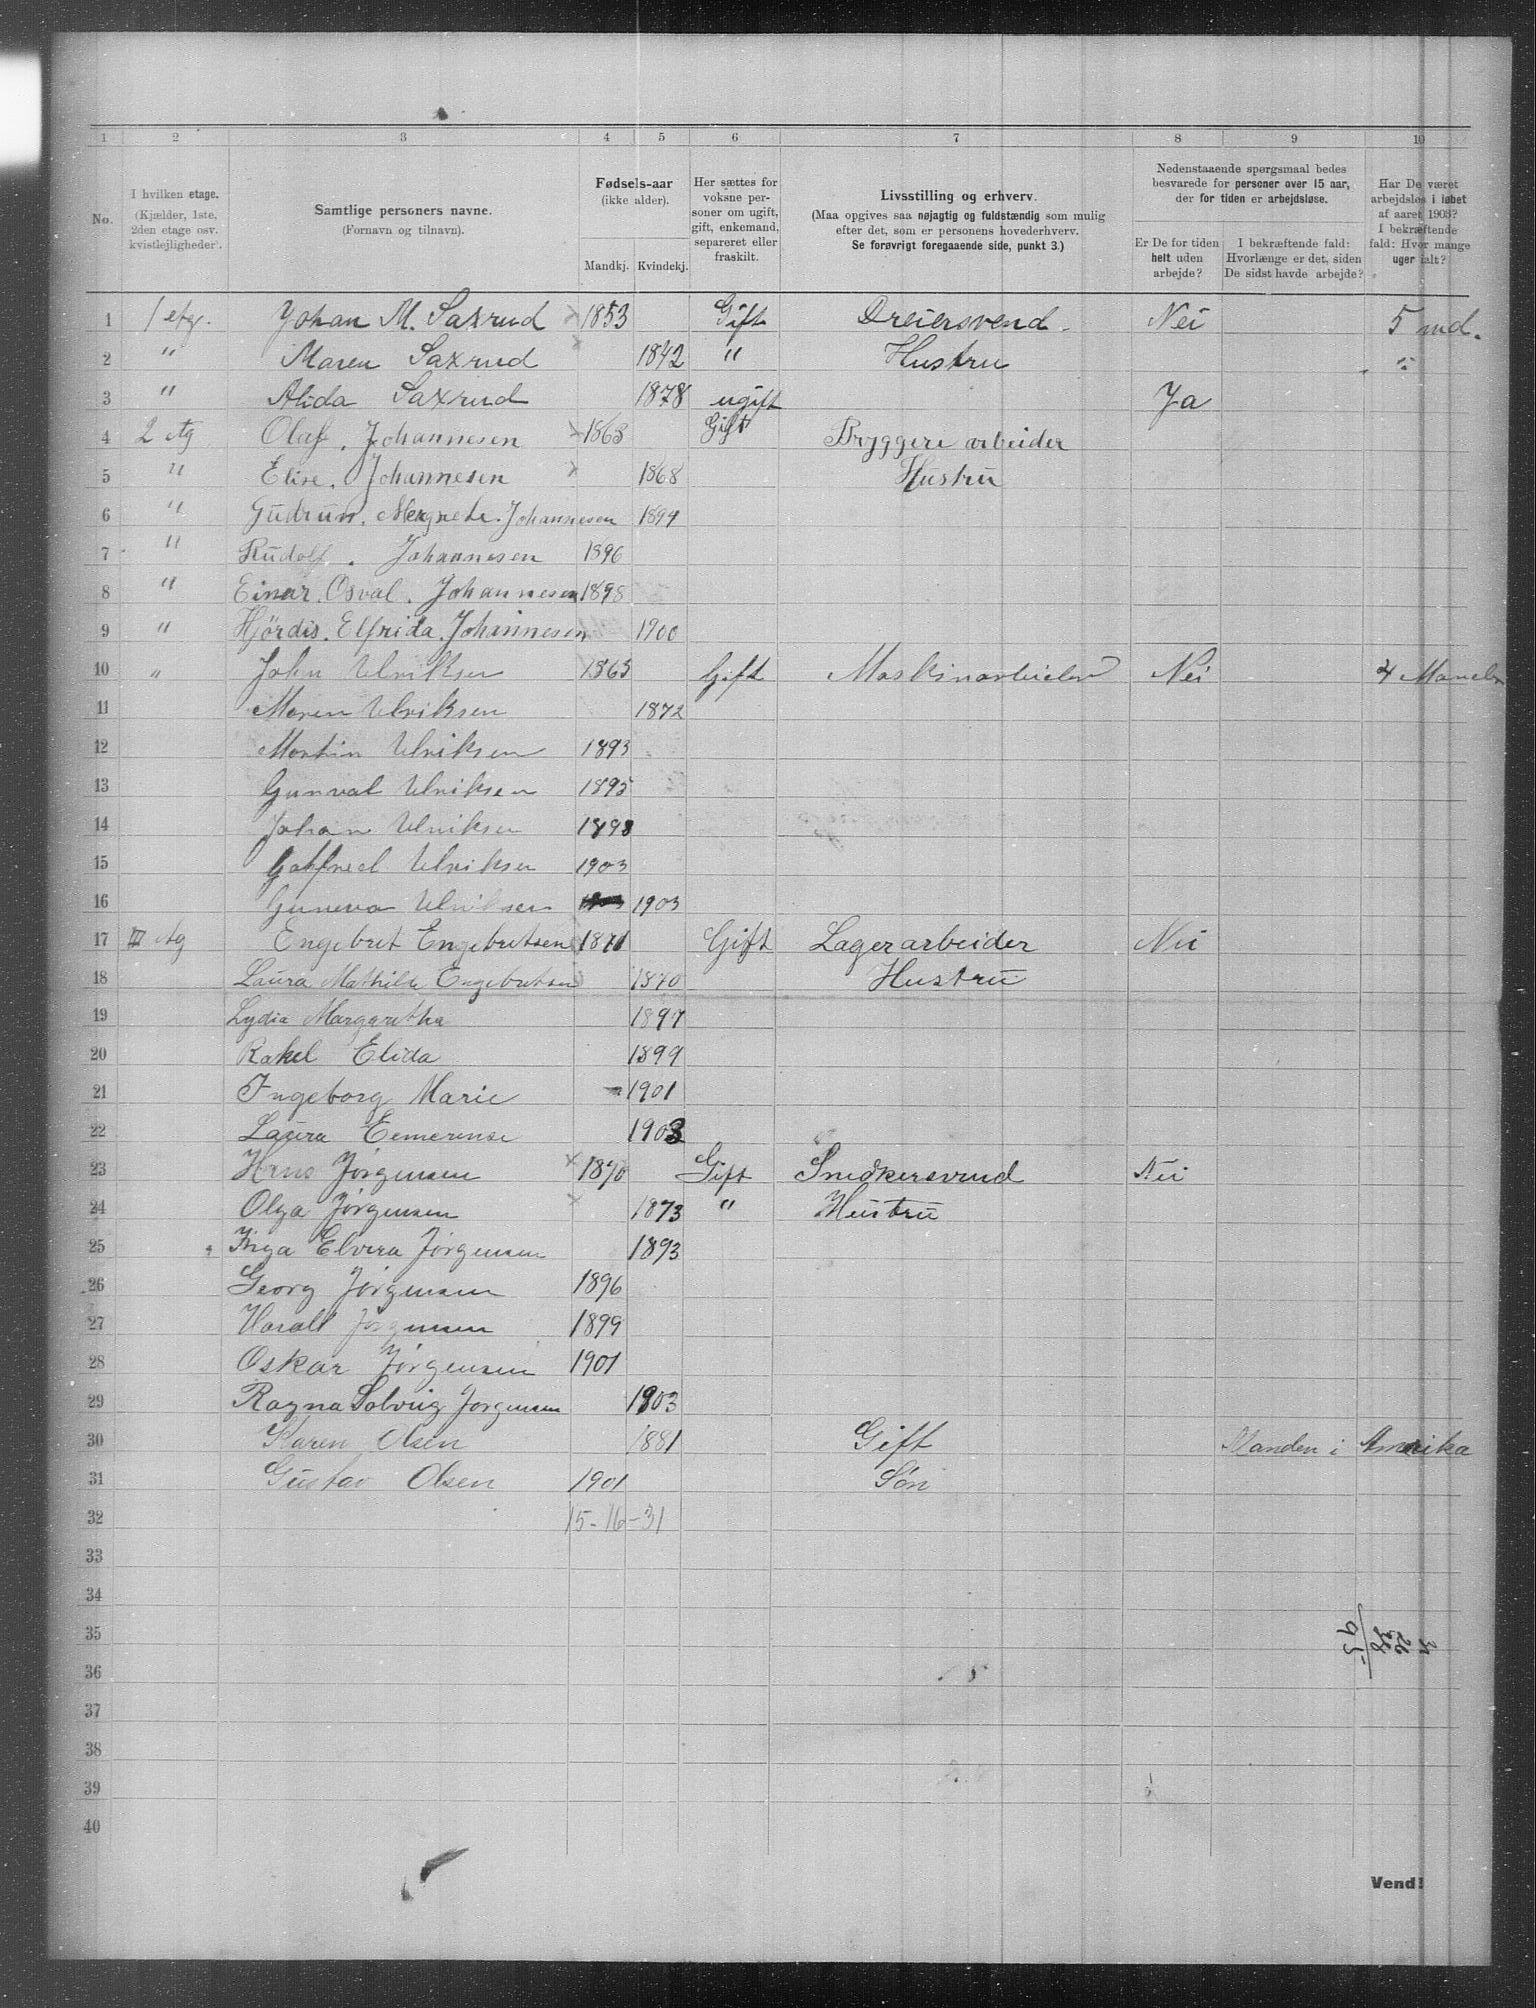 1 2 3 4 5 6 7 8 9 10
No.
I hvilken etage.
(Kjælder, 1ste,
2den etage osv.
kvistlejligheder).
Samtlige personers navne.
(Fornavn og tilnavn).
Fødsels-aar
(ikke alder).
Mandkj. Kvindekj.
Her sættes for
voksne per-
soner om ugift,
gift, enkemand,
separeret eller
fraskilt.
Livsstilling og erhverv.
(Maa opgives saa nøjagtig og fuldstændig som mulig
efter det, som er personens hovederhverv.
Se forøvrigt foregaaende side, punkt 3.)
Nedenstaaende spørgsmaal bedes
besvarede for personer over 15 aar,
der for tiden er arbejdsløse.
Er De for tiden
helt uden
arbejde?
I bekræftende fald:
Hvorlænge er det, siden
De sidst havde arbejde?
Har De været
arbejdsløs i løbet
af aaret 1903?
I bekræftende
fald: Hvor mange
uger ialt?
1 1 etg. Johan M. Saxrud × 1853 Gift Dreiersvend Nei 5 md.
2 " Maren Saxrud × 1842 " Hustru "
3 " Alida Saxrud 1878 ugift Ja
4 2 etg Olaf. Johannesen × 1863 Gift Bryggeri arbeider
5 " Elise. Johannesen × 1868 Hustru
6 " Gudrun. Magnete. Johannesen 1894
7 " Rudolf. Johannesen 1896
8 " Einar. Osval. Johannesen 1898
9 " Hjördis. Elfrida. Johannesen 1900
10 " John Ulriksen 1863 Gift Maskinarbeider Nei 4 Maneder
11 Maren Ulriksen 1872
12 Martin Ulriksen 1893
13 Gunval Ulriksen 1895
14 Johan Ulriksen 1898
15 Gotfred Ulriksen 1903
16 Guneva Ulriksen 1903 1903
17 III etg Engebret Engebretsen 1871 Gift Lagerarbeider Nei
18 Laura Mathilde Engebretsen 1870 Hustru
19 Lydia Margaretha 1897
20 Rakel Elida 1899
21 Ingeborg Marie 1901
22 Laura Eemerense 1903
23 Hans Jörgensen × 1870 Gift Snedkersvend Nei
24 Olga Jörgensen × 1873 " Hustru
25 Inga Elvira Jörgensen 1893
26 Georg Jörgensen 1896
27 Harald Jörgensen 1899
28 Oskar Jörgensen 1901
29 Ragna Solvig Jorgensen 1903
30 Karen Olsen 1881 Gift Manden i Amerika
31 Gustav Olsen 1901 Sön
32 15-16-31
33
34
35
36
37
38
39
40
Vend!